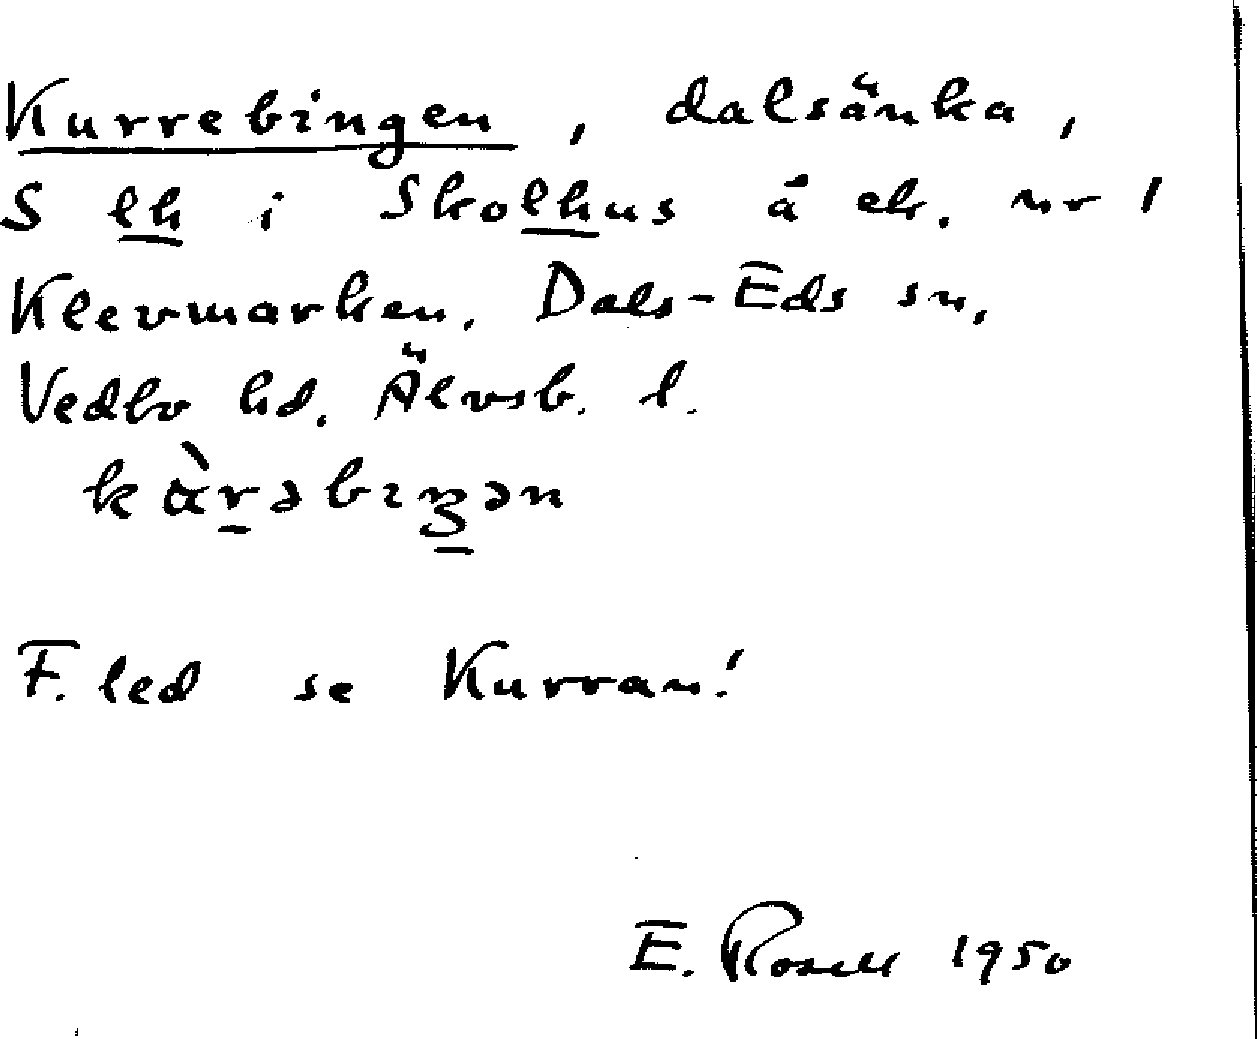 Kurrebingen, dalsänka,
S lh i Skolhus å ek. nr 1
Klevmarken. Dals-Eds sn,
Vedbo hd. Älvsb. l.
kàrəbɪŋən
F. led se Kurran!
E. Rosell 1950